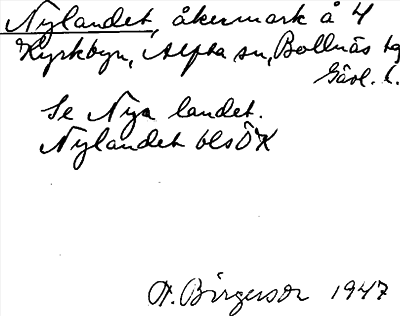 Nylandet, åkermark å 4
Kyrkbyn, Alfta sn, Bollnäs tg
Gävl. l.
Se Nya landet.
Nylandet blsÖK
H. Birgerson 1947